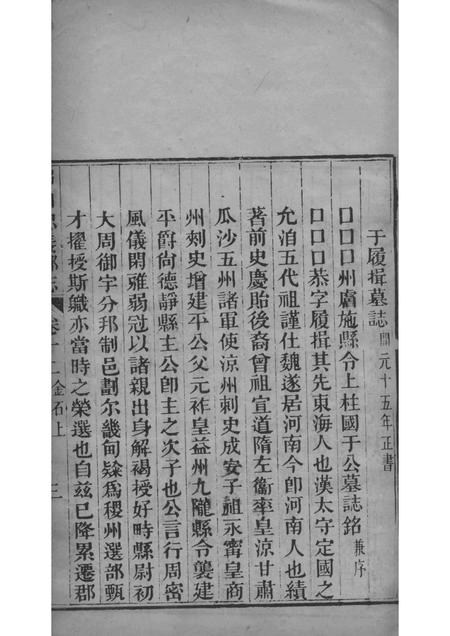 于履揖墓誌開元十五年正書
囗囗囗州膚施縣令上柱國于公墓誌銘兼序
囗囗囗恭字履揖其先東海人也漢太守定國之
允洎五代祖謹仕魏遂居河南今卽河南人也績
著前史慶胎後裔曾祖宣道隋左衞率皇涼甘肅
瓜沙五州諸軍使涼州刺史成安子祖永甯皇商
州刺史增建平公父元祚皇益州九隴縣令襲建
平爵尚德靜縣主公卽主之次子也公言行周密
風儀閑雅弱冠以諸親出身解褐授好畤縣尉初
大周御宇分邦制邑劃尔畿甸㷠爲稷州選部甄
才擢授斯職亦當時之榮選也自茲已降累遷郡
志 卷十二金石上 三